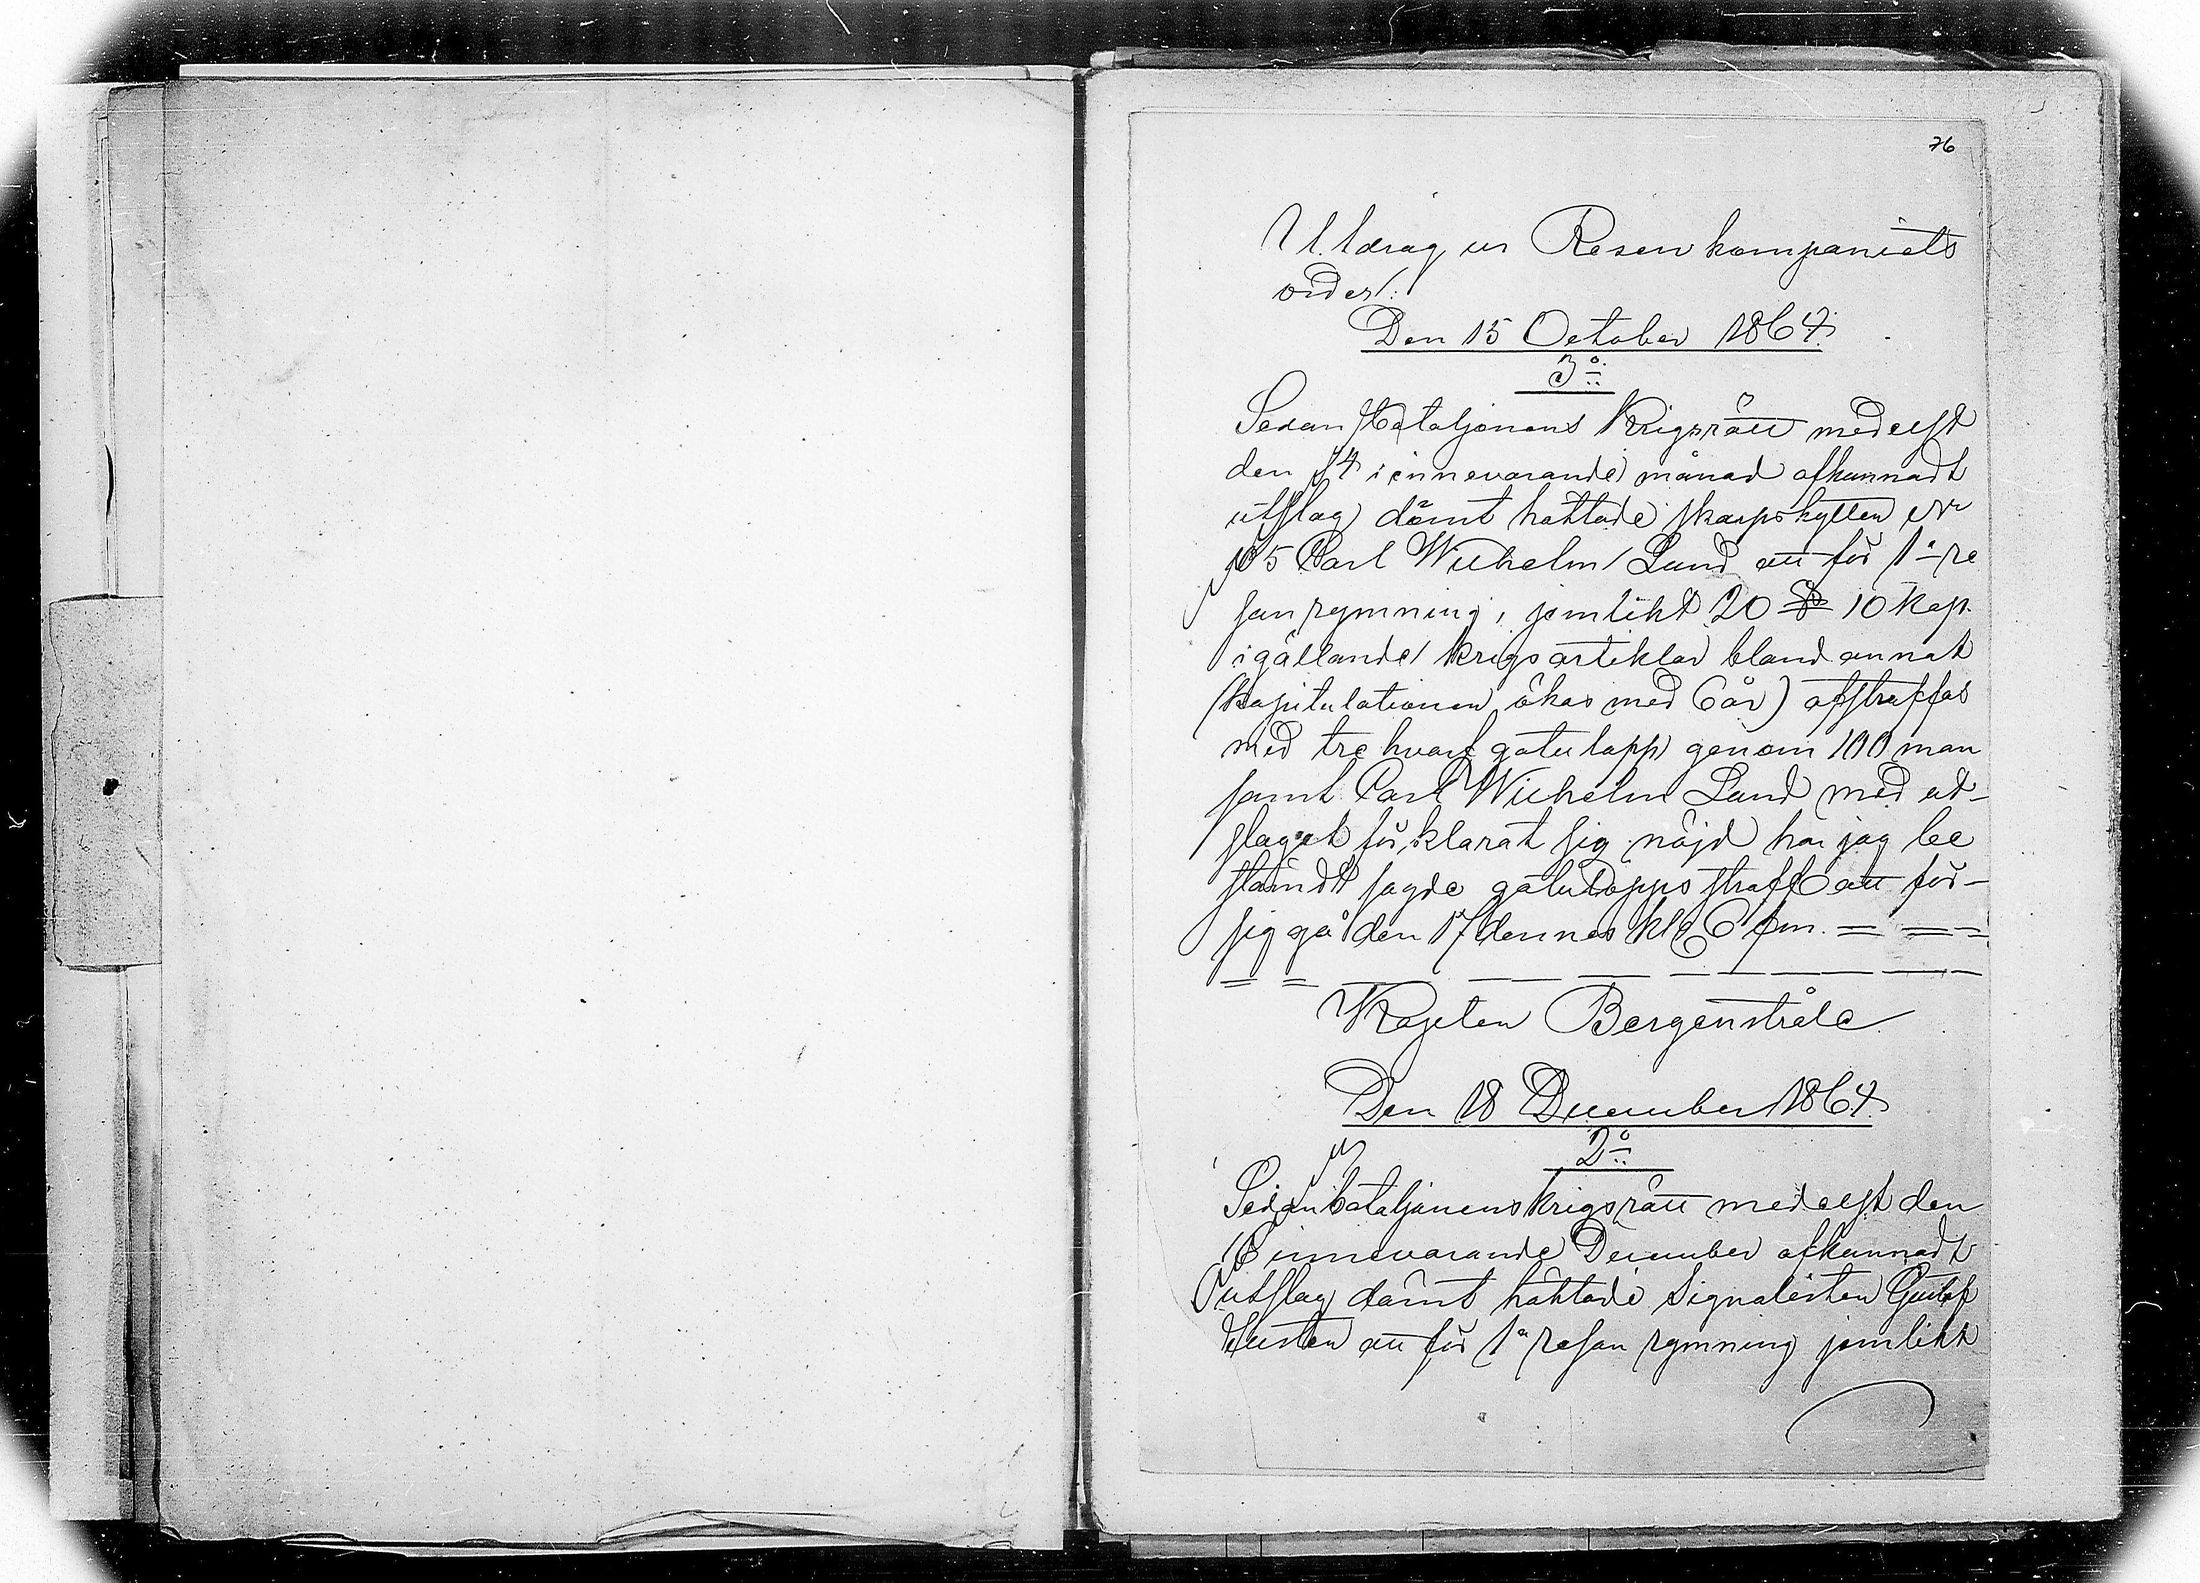 76
Utdrag ur Reserv kompaniets
order!:
Den 15 October 1864.
3o
Sedan Bataljonens Krigsrätt medelst
den 14 i innevarande månad afkunnadt
utslag dömt häktade skarpskytten No
105 Carl Wilhelm Lund att för 1a re
san rymning, jemlikt 20 § 10 Kap.
i gällande krigsartiklar bland annat
(kapitulationen ökas med 6 år) afstraffas
med tre hvarf gatulopp genom 100 man
samt Carl Wilhelm Lund med ut-
slaget förklarat sig nöjd har jag be
stämdt sagde gatulopps straff att för-
sig gå den 17 dennes kl 6 fm. = = =
Kapten Bergenstråle
Den 18 December 1864.
2o
Sedan bataljonens krigsrätt medelst den
16 innevarande December afkunnadt
utslag dömt häktade Signalisten Gustaf
att för 1a resan rymning jemlikt